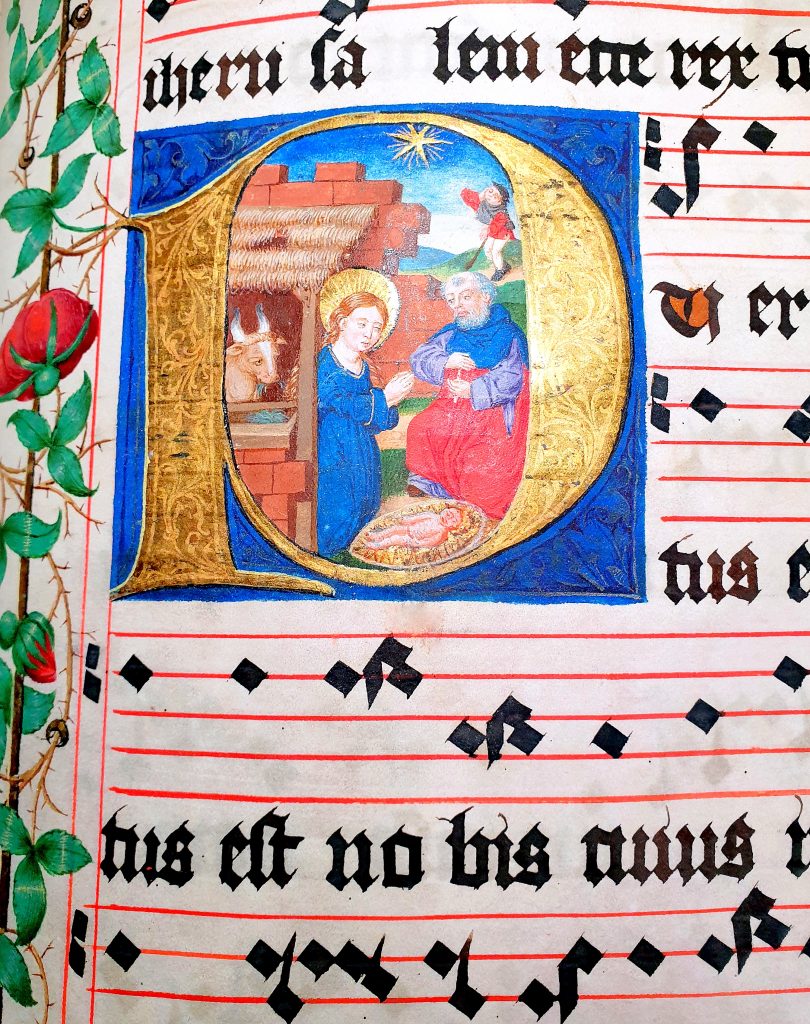 iheru sa lem ecce rex tu
P U er
tus e
tus est no bis cuius